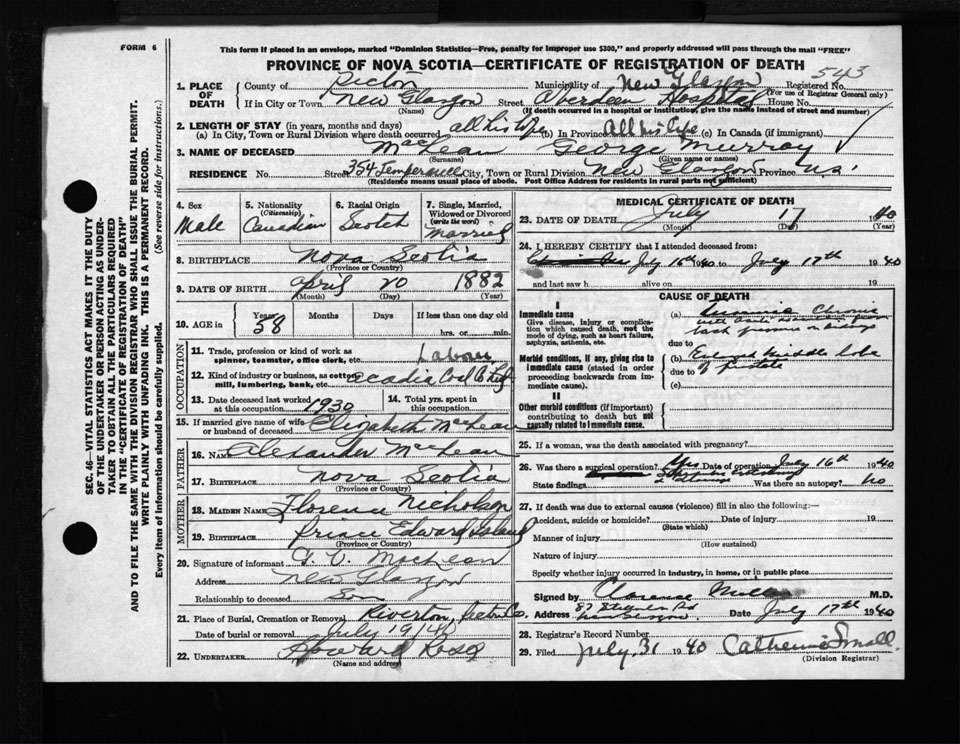 FORM 6
This form if placed in an envelope, marked "Dominion Statistics—Free, penalty for improper use $300," and properly addressed will pass through the mail "FREE"
PROVINCE OF NOVA SCOTIA—CERTIFICATE OF REGISTRATION OF DEATH
543
1. PLACE OF DEATH County of Pictou Municipality of New Glasgow Registered No. (For use of Registrar General only)
If in City or Town New Glasgow (Name) Street Aberdeen Hospital House No.
(If death occurred in a hospital or institution, give the name instead of street and number)
2. LENGTH OF STAY (in years, months and days)
(a) In City, Town or Rural Division where death occurred all his life (b) In Province All his life (c) In Canada (if immigrant)
3. NAME OF DECEASED MacLean (Surname) George Murray (Given name or names)
RESIDENCE No. 354 Street City, Town or Rural Division New Glasgow Province N.S.
(Residence means usual place of abode. Post Office Address for residents in rural parts not sufficient)
4. Sex Male
5. Nationality (Citizenship) Canadian
6. Racial Origin Scotch
7. Single, Married, Widowed or Divorced (write the word) Married
8. BIRTHPLACE Nova Scotia (Province or Country)
9. DATE OF BIRTH April (Month) 20 (Day) 1882 (Year)
10. AGE in Years 58 Months Days If less than one day old hrs. or min.
OCCUPATION
11. Trade, profession or kind of work as spinner, teamster, office clerk, etc. Labour
12. Kind of industry or business, as cotton mill, lumbering, bank, etc. Acadia Coal Co
13. Date deceased last worked at this occupation 1939
14. Total yrs. spent in this occupation
15. If married give name of wife or husband of deceased Elizabeth MacLean
FATHER
16. NAME Alexander MacLean
17. BIRTHPLACE Nova Scotia (Province or Country)
MOTHER
18. MAIDEN NAME Florence Nicholson
19. BIRTHPLACE Prince Edward Island (Province or Country)
20. Signature of informant MacLean
Address New Glasgow
Relationship to deceased Son
21. Place of Burial, Cremation or Removal Riverton, Pictou Co.
Date of burial or removal July 19/40
22. UNDERTAKER Howard Ross (Name and address)
MEDICAL CERTIFICATE OF DEATH
23. DATE OF DEATH July (Month) 17 (Day) 1940 (Year)
24. I HEREBY CERTIFY that I attended deceased from:
July 16th 1940 to July 17th 1940
and last saw h alive on 19
CAUSE OF DEATH
I
Immediate cause
Give disease, injury or complication which caused death, not the mode of dying, such as heart failure, asphyxia, asthenia, etc.
(a) Uraemia Chronic
due to
Morbid conditions, if any, giving rise to immediate cause (stated in order proceeding backwards from immediate cause).
(b) Enlarged Middle lobe
due to of prostate
(c)
II
Other morbid conditions (if important) contributing to death but not causally related to immediate cause.
25. If a woman, was the death associated with pregnancy?
26. Was there a surgical operation? Yes Date of operation July 16th 1940
State findings Was there an autopsy? No
27. If death was due to external causes (violence) fill in also the following:—
Accident, suicide or homicide? (State which) Date of injury 19
Manner of injury (How sustained)
Nature of injury
Specify whether injury occurred in industry, in home, or in public place
Signed by Clarence Miller M.D.
Address New Glasgow Date July 17th 1940
28. Registrar's Record Number
29. Filed July, 31 1940 Catherine Small (Division Registrar)
SEC. 46—VITAL STATISTICS ACT MAKES IT THE DUTY
OF THE UNDERTAKER OR PERSON ACTING AS UNDER-
TAKER TO OBTAIN ALL THE PARTICULARS REQUIRED
IN THE "CERTIFICATE OF REGISTRATION OF DEATH"
AND TO FILE THE SAME WITH THE DIVISION REGISTRAR WHO SHALL ISSUE THE BURIAL PERMIT.
WRITE PLAINLY WITH UNFADING INK. THIS IS A PERMANENT RECORD.
Every item of information should be carefully supplied. (See reverse side for instructions.)